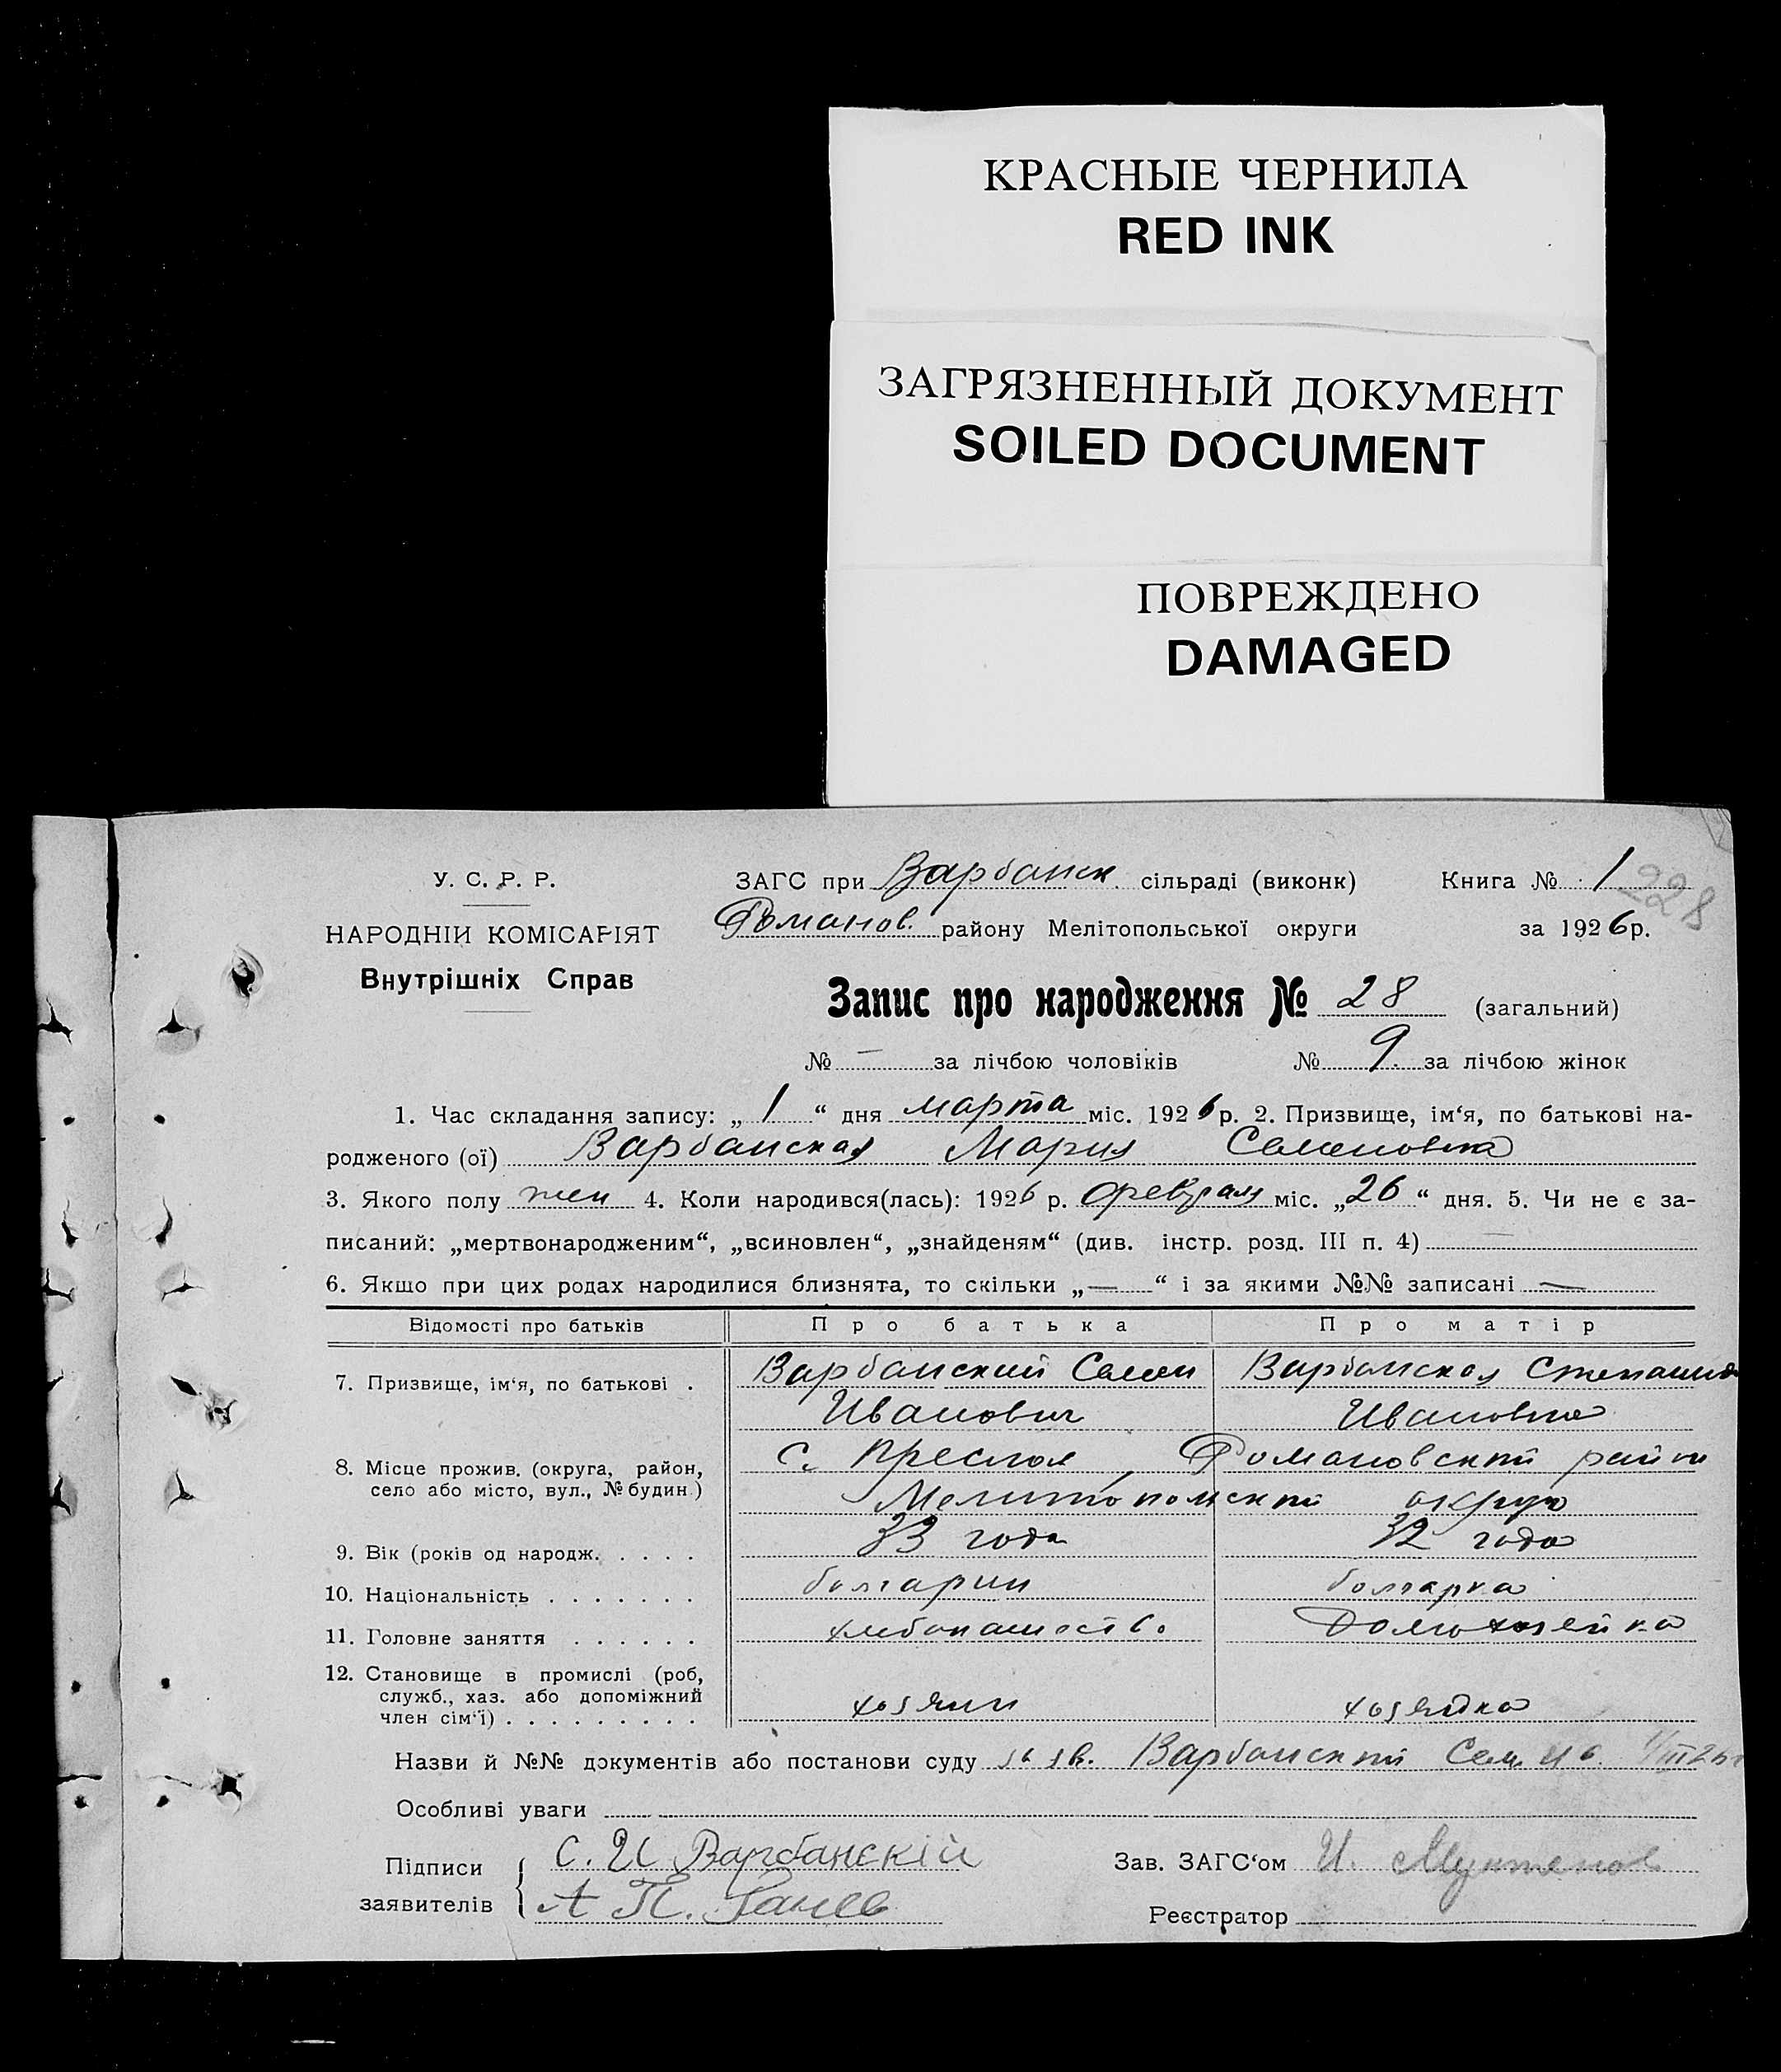 КРАСНЫЕ ЧЕРНИЛА
RED INK
ЗАГРЯЗНЕННЫЙ ДОКУМЕНТ
SOILED DOCUMENT
ПОВРЕЖДЕНО
DAMAGED
У. С. Р. Р.
НАРОДНІИ КОМІСАРІЯТ
Внутрішніх Справ
ЗАГС при Варбанск. сільраді (виконк) Книга № 1 228
Романов. району Мелітопольської округи за 1926 р.
Запис про народження № 28 (загальний)
№ — за лічбою чоловіків № 9. за лічбою жінок
1. Час складання запису: „ 1 “ дня марта міс. 1926 р. 2. Призвище, ім‘я, по батькові на-
родженого (ої) Варбанская Мария Семеновна
3. Якого полу жен 4. Коли народився(лась): 1926 р. февраля міс. „26“ дня. 5. Чи не є за-
писаний: „мертвонародженим“, „всиновлен“, „знайденям“ (див. інстр. розд. III п. 4) —
6. Якшо при цих родах народилися близнята, то скільки „—“ і за якими №№ записані —
Відомості про батьків Про батька Про матір
7. Призвище, ім‘я, по батькові . Варбанский Семен Варбанская Степанида
Иванович Ивановна
8. Місце прожив. (округа, район, село або місто, вул., № будин.) с. Преслав, Романовский район
Мелитопольский округ
9. Вік (років од народж. . . . . 33 года 32 года
10. Національність . . . . . . . болгарин болгарка
11. Головне заняття . . . . . . хлебопашество домохозяйка
12. Становище в промислі (роб, служб., хаз. або допоміжний член сім‘ї) . . . . . . . . . хозяин хозяйка
Назви й №№ документів або постанови суду Варбанский Сем. Ив. 1/III 26г
Особливі уваги
Підписи заявителів { С. И Варбанскій Зав. ЗАГС‘ом И.
А П. Ганев
Реєстратор